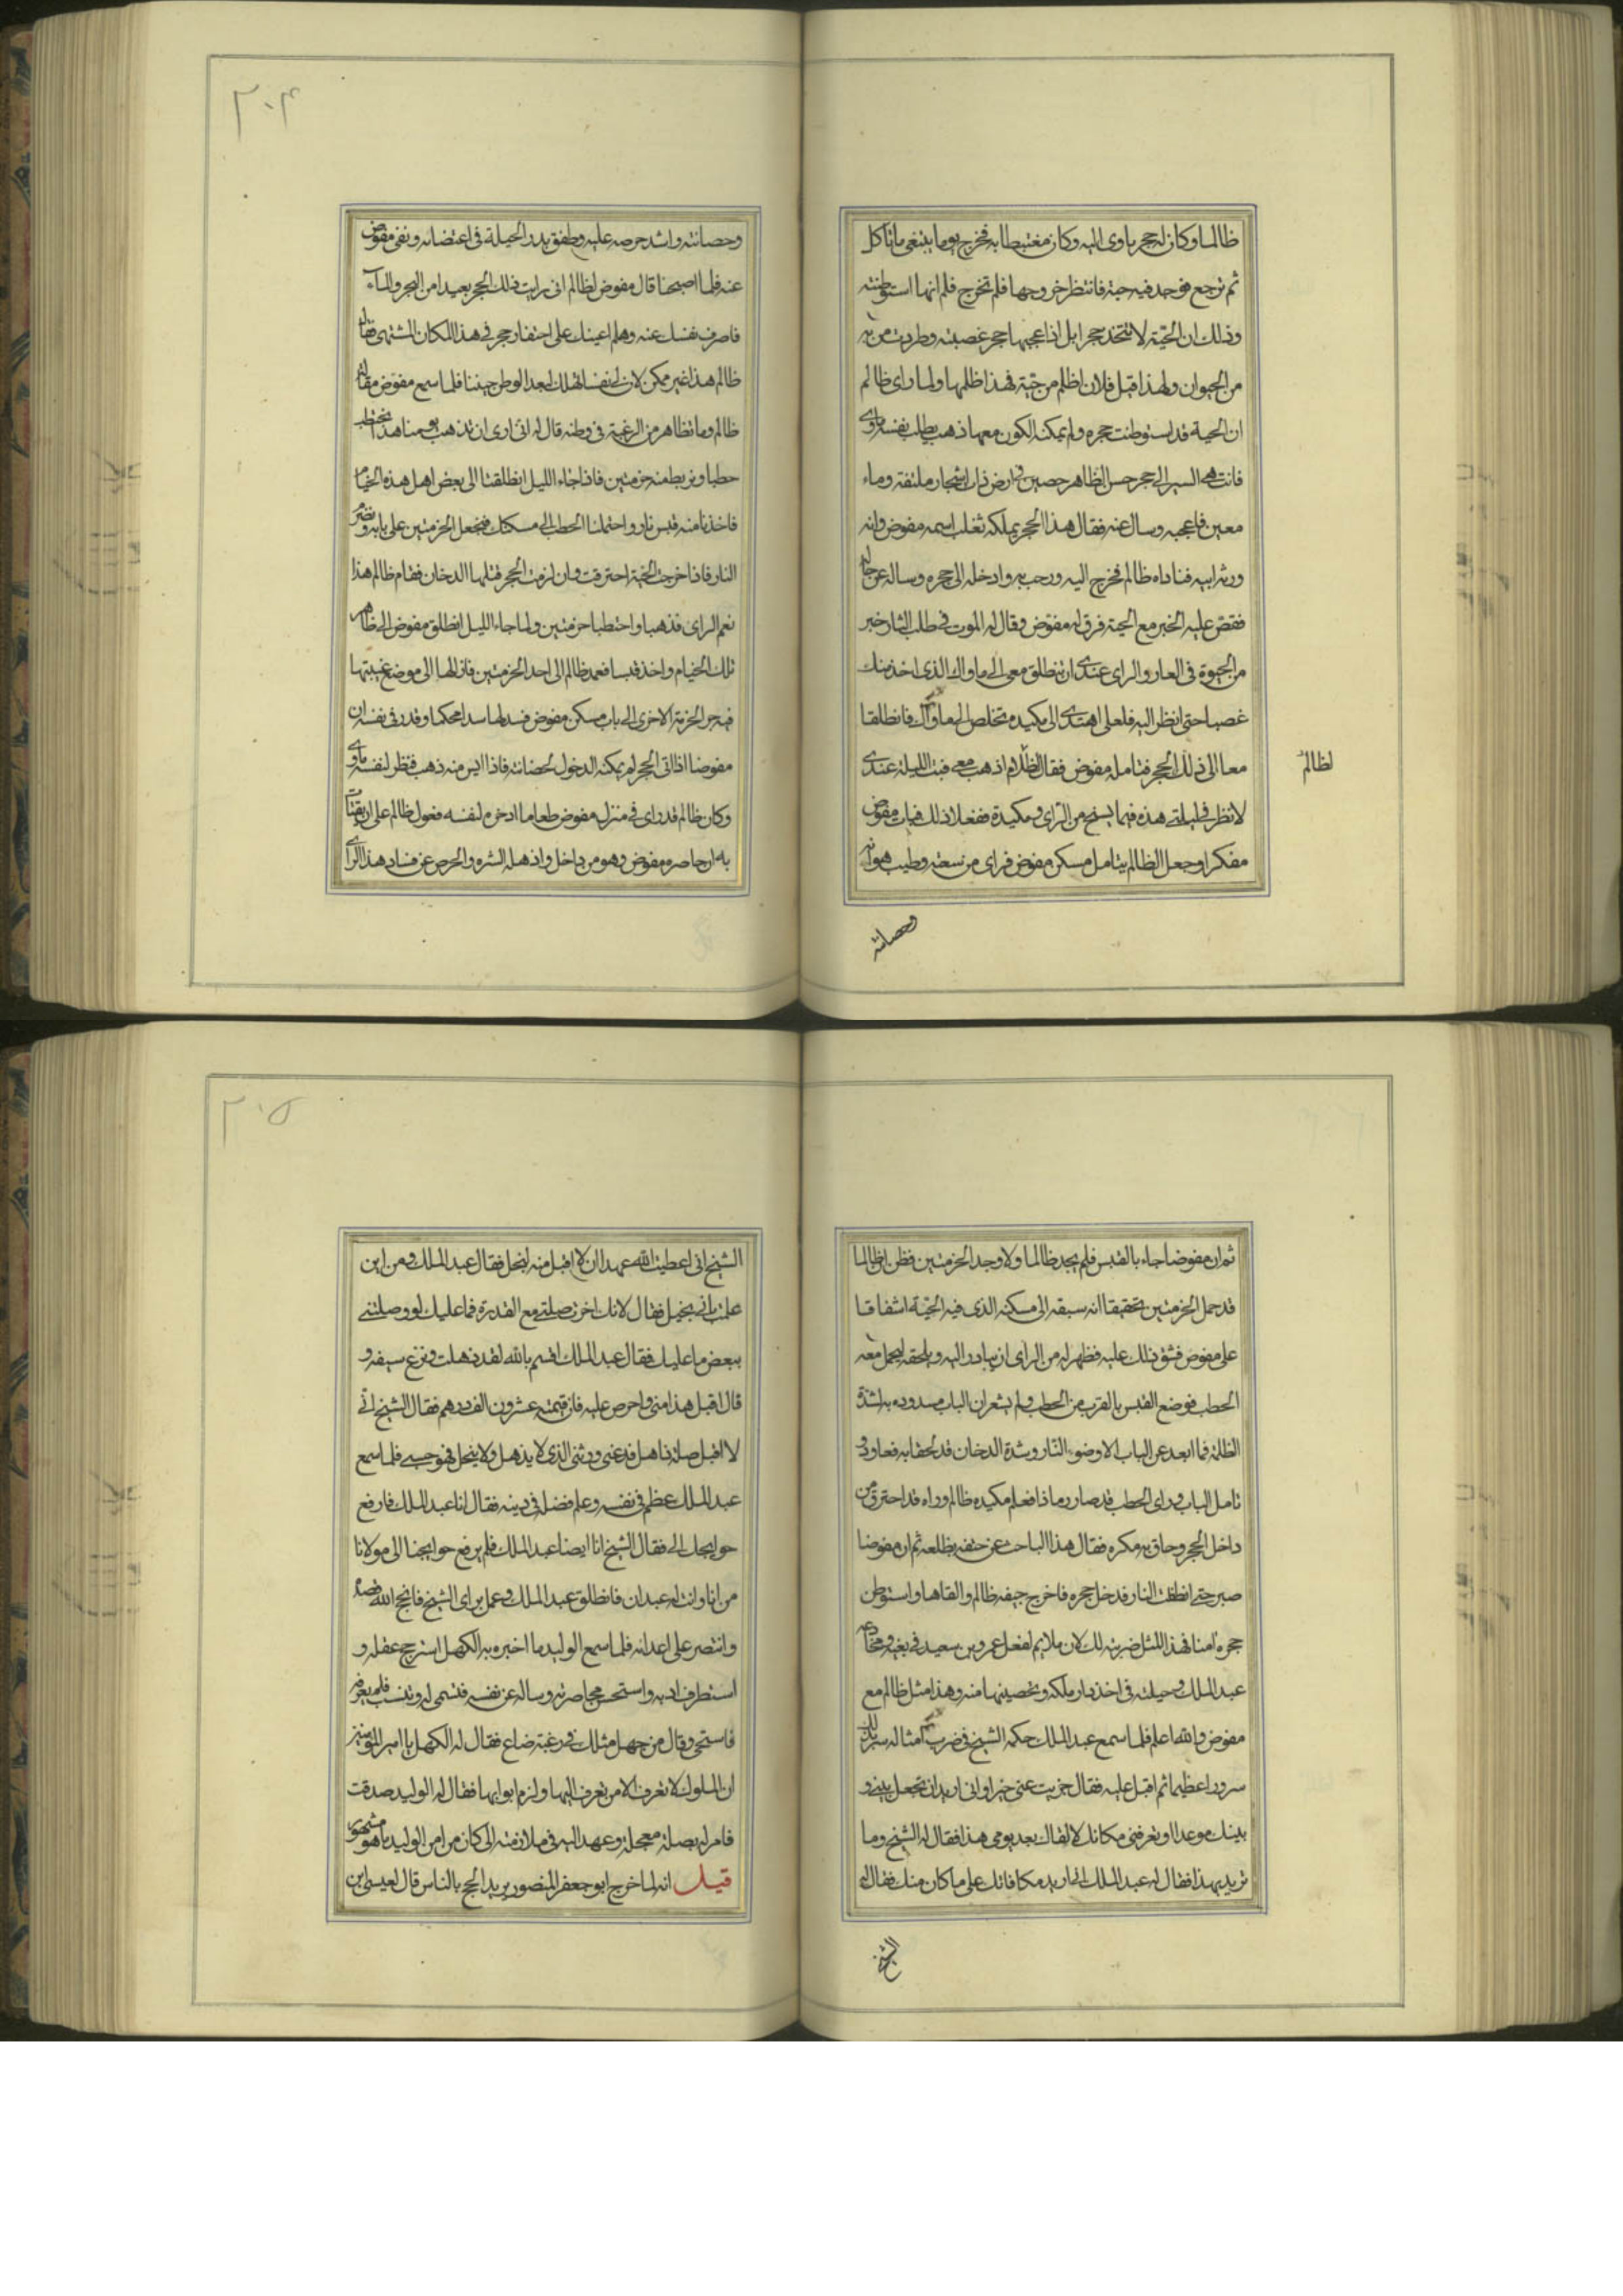 ظالما وكان له جحر ياوى اليه وكان مغتبطا به فخرج يوما يبتغى ما ياكل
ثم رجع فوجد فيه حية فانتظر خروجها فلم تخرج فلم انها استوطنته
وذلك ان الحية لا تتخذ جحرا بل اذا عجبها جحر غصبته وطردت من به
من الحيوان ولهذا قيل فلان اظلم من حية فهذا ظلمها ولما راى ظالم
ان الحية قد استوطنت جحره ولم يمكنه الكون معها ذهب يطلب لنفسه ماوى
فانتهى السير الى جحر حسن الظاهر حصين فى ارض ذات اشجار ملتفة وماء
معين فاعجبه وسال عنه فقال هذا الحجر يملكه ثعلب اسمه مفوض وانه
ورثه ابيه فناداه ظالم فخرج اليه ورحب به وادخله الى جحره وساله عن حاله
فقص عليه الخبر مع الحية فرق له مفوض وقال له الموت فى طلب الثار خير
من الحيوة فى العار والراى عندى ان تنطلق معى الى ماواك الذى اخذ منك
غصبا حتى انظر اليه فلعلى اهتدى الى مكيدة تخلص الى ماواك فانطلقا
معا الى ذلك الحجر فتامله مفوض فقال لظالم اذهب معى فبت الليلة عندى
لظالم
لانظر فى ليلتى هذه فيما يسنح من الراى ومكيدة ففعلا ذلك فبات مفوض
مفكرا وجعل الظالم يتامل مسكن مفوض فراى من سعته وطيب هوائه
وحصانته
٢٠۴
وحصانته واشد حرصه عليه وطفق يدبر الحيلة فى اعتضابه ونفى مفوض
عنه فلما اصبحنا قال مفوض لظالم انى رايت ذلك الحجر بعيدا من الشجر والماء
فاصرف نفسك عنه وهلم اعينك على احتفار جحر فى هذا المكان المشتهى فقال
ظالم هذا غير ممكن لان لى نفسا تهلك لبعد الوطن حيننا فلما سمع مفوض مقالة
ظالم وما تظاهر من الرغبة فى وطنه قال له انى ارى ان نذهب يومنا هذا نحتطب
حطبا ونربط منه حزمتين فاذا جاء الليل انطلقنا الى بعض اهل هذه الخيام
فاخذنا منه قبس نار واحتملنا الحطب الى مسكنك فنجعل الحزمتين على بابه ونضرم
النار فاذا خرجت الحية احترقت وان لزمت الحجر قتلها الدخان فقام ظالم هذا
نعم الراى فذهبا واحتطبا حزمتين ولما جاء الليل انطلق مفوض الى ظاهر
تلك الخيام واخذ قبسا فعمد ظالم الى احد الحزمتين فازالها الى موضع غيبتها
فيه جر الحزمة الاخرى الى باب مسكن مفوض فسدها سدا محكما وقدر فى نفسه ان
مفوضا اذا اتى الحجر لم يمكنه الدخول لحصانته فاذا ايس منه ذهب فنظر لنفسه ماوى
وكان ظالم قد راى فى منزل مفوض طعاما ادخره لنفسه فعول ظالم على ان يقتات
به ان حاصره مفوض وهو من داخل واذهله الشره والحرص عن فساد هذا الراى
ثم ان مفوضا جاء بالقبس فلم يجد ظالما ولا وجد الحزمتين فظن ان ظالما
قد حمل الحزمتين تحقيقا انه سبقه الى مسكنه الذى فيه الحية اشفاقا
على مفوض فشق ذلك عليه فظهر له من الراى ان يبادر اليه ويلحقه ليحمل معه
الحطب فوضع القبس بالقرب من الحطب ولم يشعر ان الباب مسدوده به لشدة
الظلمة فما ابعد عن الباب الا وضوء النار وشدة الدخان قد لحقا به فعاود و
تامل الباب وراى الحطب قد صار رمادا فعلم مكيده ظالم وراه قد احترق من
داخل الحجر وحاق به مكره فقال هذا الباحث عن حتفه بظلعه ثم ان مفوضا
صبر حتى انطفت النار فدخل جحره فاخرج جيفه ظالم والقاها واستوطن
جحره آمنا فهذا المثل ضربته لك لان ملايم لفعل عمرو بن سعيد فى بغيه ومخادعته
عبد الملك وحيلته فى اخذ دار ملكه وتحصينها منه وهذا مثل ظالم مع
مفوض والله اعلم فلما سمع عبد الملك حكمه الشيخ فى ضرب امثاله سر بذلك
سرورا عظيما ثم اقبل عليه فقال جزيت عنى خيرا وانى اريد ان تجعل بينى و
بينك موعدا وتعرفنى مكانك لالقاك بعد يومى هذا فقال له الشيخ وما
تريد بهذا فقال له عبد الملك انى اريد مكافاتك على ما كان منك فقال له
الشيخ
٢٠۵
الشيخ انى اعطيت الله عهدا ان لا اقبل منه لبخل فقال عبد الملك ومن اين
علمت بانى بخيل فقال لانك اخرت صلتى مع القدرة فما عليك لو وصلتنى
ببعض ما عليك فقال عبد الملك اقسم بالله لقد ذهلت ونزع سيفه و
قال اقبل هذا منى واحرص عليه فان قيمته عشرون الف درهم فقال الشيخ انى
لا اقبل صلة ذاهل فدعنى وربى الذى لا يذهل ولا يبخل فهو حسبى فلما سمع
عبد الملك عظم فى نفسه وعلم فضله فى دينه فقال انا عبد الملك فارفع
حوايجك الى فقال الشيخ انا ايضا عبد الملك فلم نرفع حوايجنا الى مولانا
من انا وانت له عبدان فانطلق عبد الملك وعمل براى الشيخ فانجح الله قصده
وانتصر على اعدائه فلما سمع الوليد ما اخبره به الكهل استرجح عقله و
استطرف ادبه واستحسن محاضرته وساله عن نفسه فتسمى له وتنسب فلم يعرفه
فاستحى وقال من جهل مثلك فى رغبته ضاع فقال له الكهل يا امير المؤمنين
ان الملوك لا تعرف الا من تعرف اليها ولزم ابوابها فقال له الوليد صدقت
فامر له بصلة معجلة وعهد اليه فى ملازمته الى كان من امر الوليد ما هو مشهور
قيل انه لما خرج ابو جعفر المنصور يريد الحج بالناس قال لعيسى بن